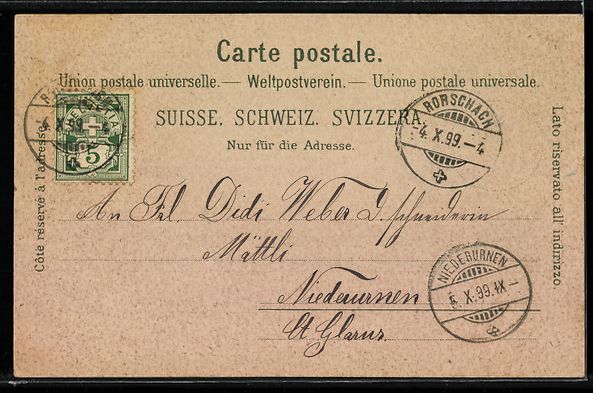 Carte postale.
Union postale universelle. — Weltpostverein. — Unione postale universale.
SUISSE. SCHWEIZ. SVIZZERA.
Nur für die Adresse.
Côte réservé à l'adresse.
Lato riservato all'indirizzo.
5
4. X. 99.
RORSCHACH
4. X. 99. – 4.
An Frl. Didi Weber
Mättli
Niederurnen
Ct Glarus.
NIEDERURNEN
5. X. 99. IX –